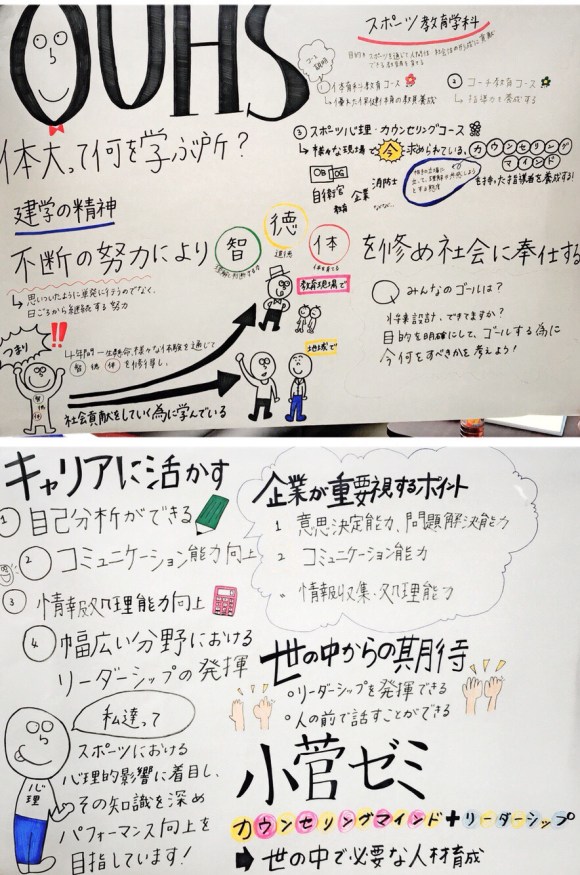 OUHS
体大って何を学ぶ所？
スポーツ教育学科
コース説明
① 体育科教育コース
② コーチ教育コース
↳指導力を養成する
③ スポーツ心理・カウンセリングコース
↳様々な現場で今求められている、カウンセリング
マインド
を持った指導者を養成する！
自衛官
教育
企業
消防士
などなど…
建学の精神
不断の努力により 智 徳 体 を修め社会に奉仕する
道徳
↳思いついたように単発に行うのでなく、
日ごろから継続する努力
つまり
!!
4年間一生懸命、様々な体験を通じて
智 徳 体 を修得し、
社会貢献をしていく為に学んでいる
教育現場で
地域で
Q みんなのゴールは？
将来設計、できてますか？
目的を明確にして、ゴールする為に
今何をすべきかを考えよう！
キャリアに活かす
① 自己分析ができる
② コミュニケーション能力向上
③ 情報処理能力向上
④ 幅広い分野における
リーダーシップの発揮
企業が重要視するポイント
1 意思決定能力、問題解決能力
2 コミュニケーション能力
情報収集・処理能力
世の中からの期待
○リーダーシップを発揮できる
○人の前で話すことができる
私達って
心理
スポーツにおける
心理的影響に着目し、
その知識を深め
パフォーマンス向上を
目指しています！
小菅ゼミ
カウンセリングマインド+リーダーシップ
➡ 世の中で必要な人材育成